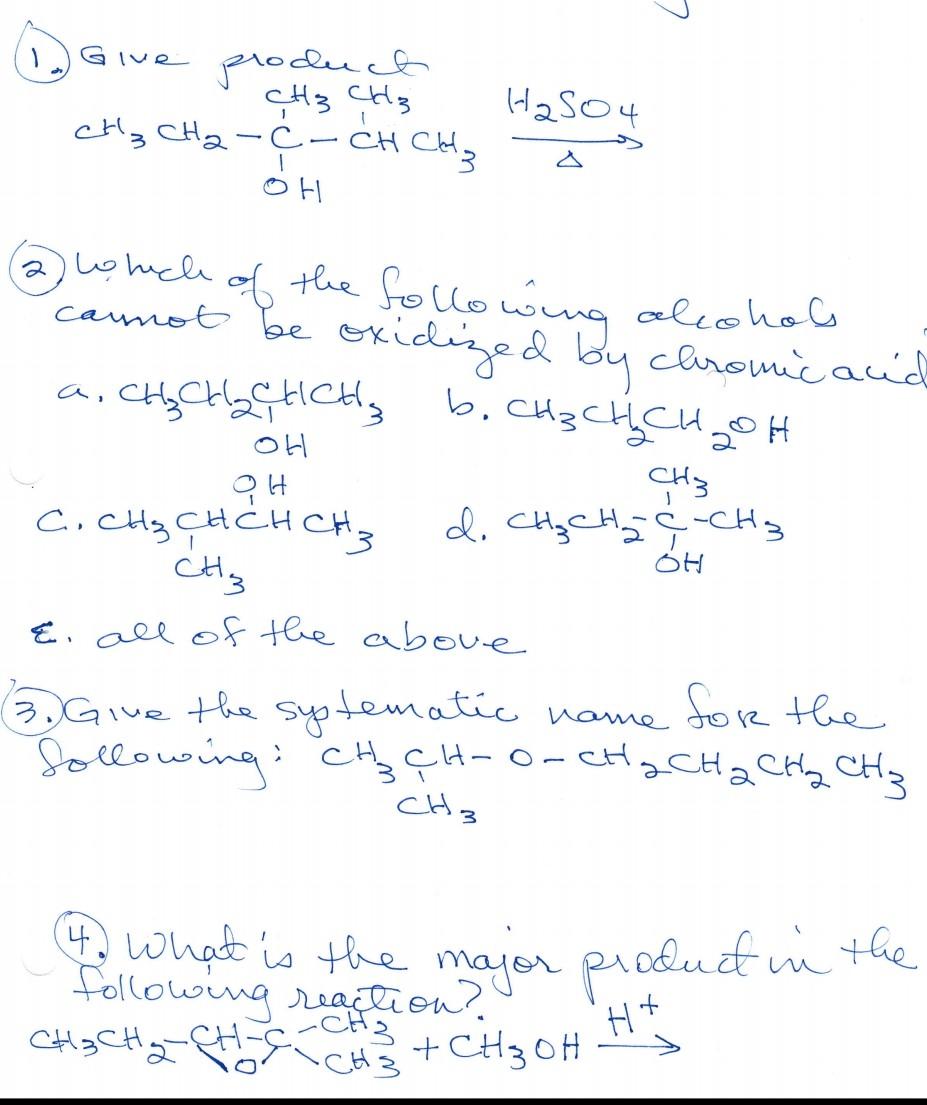 1. Give product
CH3 CH3
CH3 CH2 - C - CH CH3 H2SO4
Δ
OH
2. Which of the following alcohols
cannot be oxidized by chromic acid
a. CH3CH2CHCH3 b. CH3CH2CH2OH
OH
OH CH3
C. CH3 CHCHCH3 d. CH3CH2-C-CH3
CH3 OH
E. all of the above
3. Give the systematic name for the
following: CH3CH-O-CH2CH2CH2CH3
CH3
4. What is the major product in the
following reaction?
CH3CH2-CH-C-CH3 + CH3OH H+
O CH3